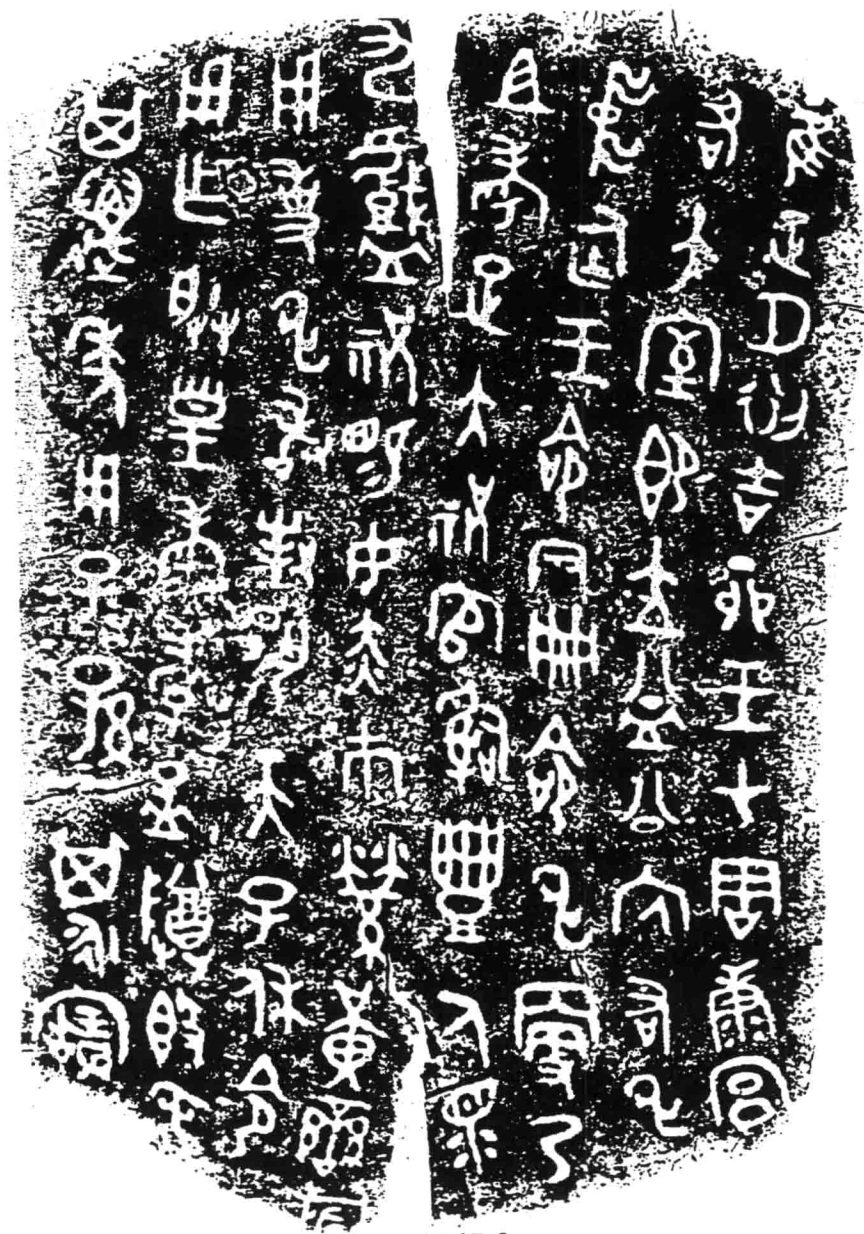 隹正月初吉丁卯王才周康宮
各大室即立益公內右𤔲
中廷王命尹冊命𤔲更乃
且考疋大祝官𤔲豐人眔
九戲祝易女赤巿縈黃䜌旂
用事𤔲敢對揚天子休令
用乍朕皇考孝孟尊𣪘𤔲
其邁年用子子孫孫其永寶